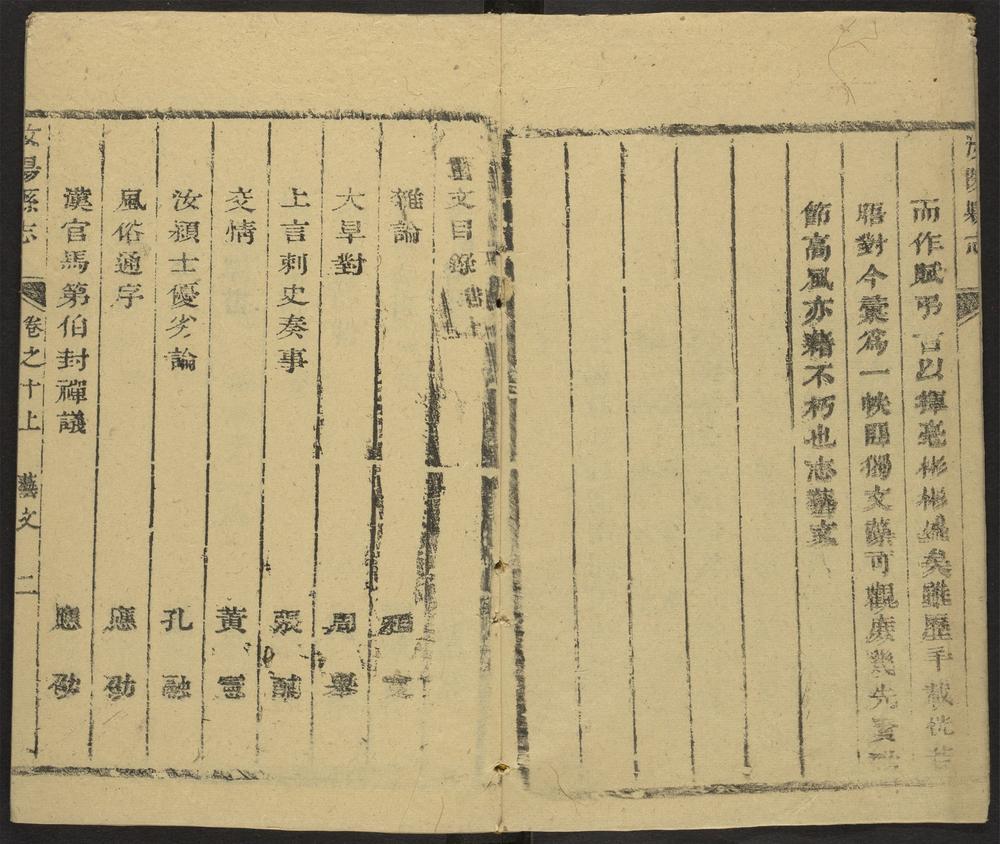 而作賦弔古以揮毫彬彬盛矣雖歷千載恍若
晤對今彙爲一帙匪獨文藻可觀庶幾先賢
節高風亦藉不朽也志藝文
藝文目錄卷十
雜論
大旱對 周舉
上言刺史奏事 張酺
交情 黃憲
汝潁士優劣論 孔融
風俗通序 應劭
漢官馬第伯封禪議 應劭
汝陽縣志 卷之十上 藝文 二